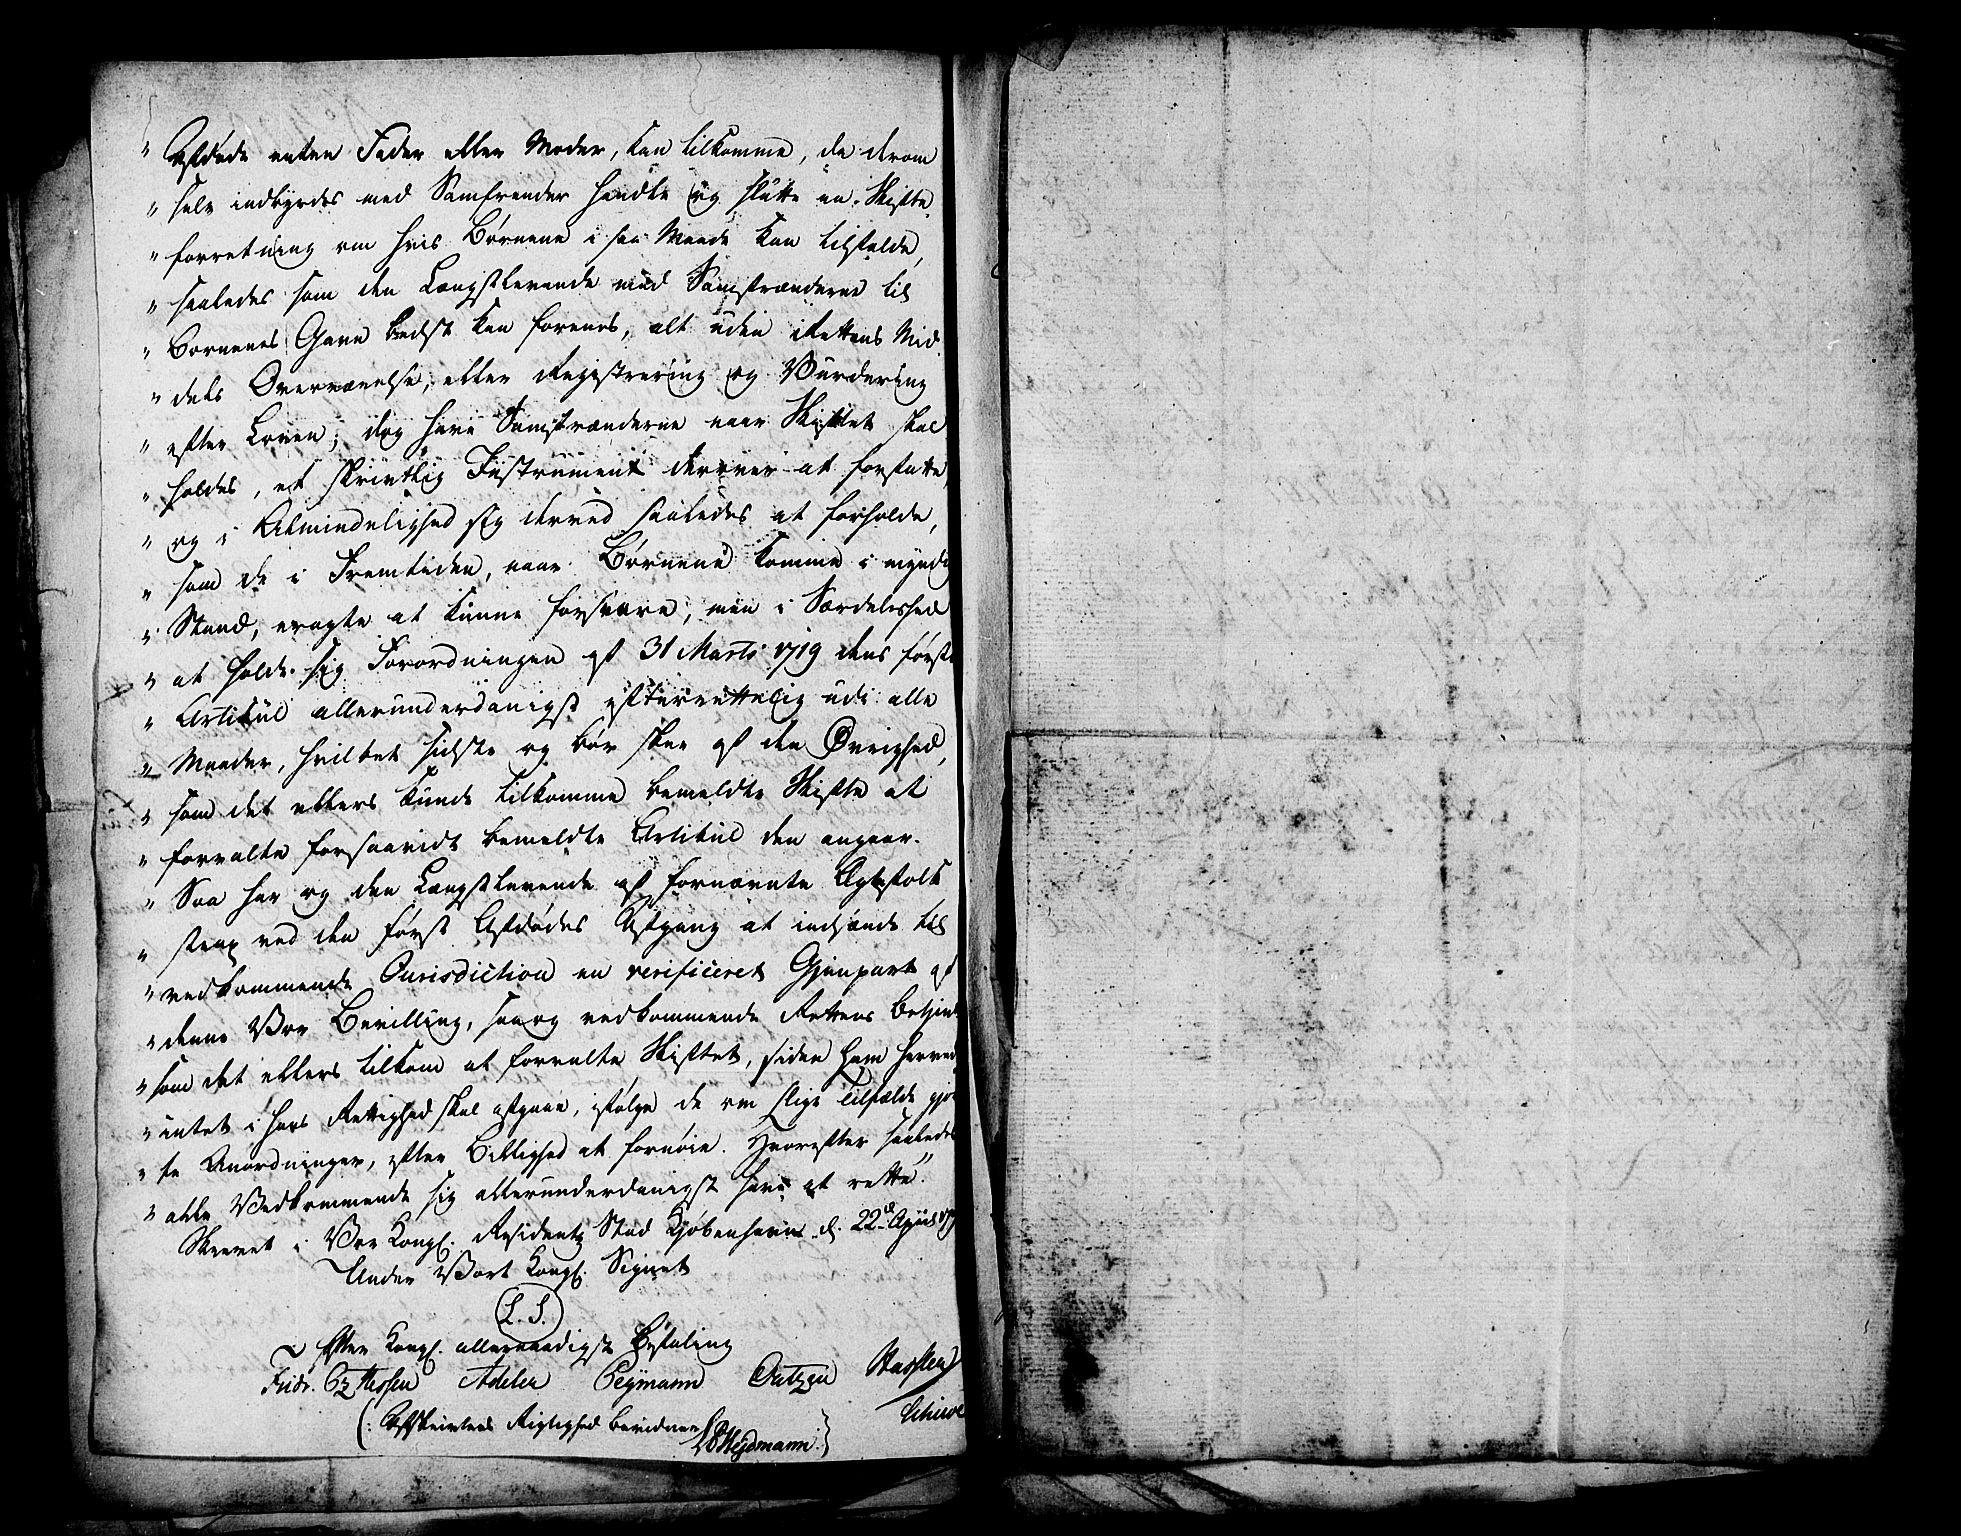 " Afdøde enten Fader eller Moder, kan tilkomme, da derom
" selv indbyrdes med Samfrender handle og slutte en Skifte
" forretning om hvis Børnene i saa Maade kan tilfalde,
" saaledes som den Længstlevende med Samfrænderne til
" Børnenes Gavn bedst kan forenes, alt uden Rettens Mid
" dels Overværelse, eller Registrering og Vurdering
" efter Loven; dog have Samfrænderne naar Skiftet skal
" holdes, et skrivtlig Instrument derover at forfatte,
" og i Almindelighed sig derved saaledes at forholde,
" som de i Fremtiden, naar Børnene komme i myndig
" Stand, eragte at kunne forsvare, men i Særdeleshed
" at holde sig Forordningen af 31 Marts 1719 dens første
" Artikul allerunderdanigst efterrettelig udi alle
" Maader, hvilket sidste og bør skee af den Øvrighed,
" som det ellers kunde tilkomme bemeldte Skifte at
" forvalte forsaavidt bemeldte Artikul den angaar.
" Saa har og den Længstlevende af fornævnte Ægtefolk
" strax ved den først Afdødes Afgang at indsende til
" vedkommende Jurisdiction en verificeret Gjenpart af
" denne Vor Bevilling, saa og vedkommende Rettens Betjent
" som det ellers tilkom at forvalte Skiftet, siden ham herved
" intet i hans Rettighed skal afgaae, ifølge de om slige Tilfælde gjor
" te Anordninger, efter Billighed at fornøie. Hvorefter saaledes
" alle Vedkommende sig allerunderdanigst have at rette."
Skrevet i Vor Kongl. Residentz Stad Kjøbenhavn d. 22de April
Under Vort Kongl. Signet
(L. S.)
Efter Kongl. allernaadigst Befaling
Fridr. Pz Hessen Adeler Peymann
(: Afskrivtens Rigtighed bevidner